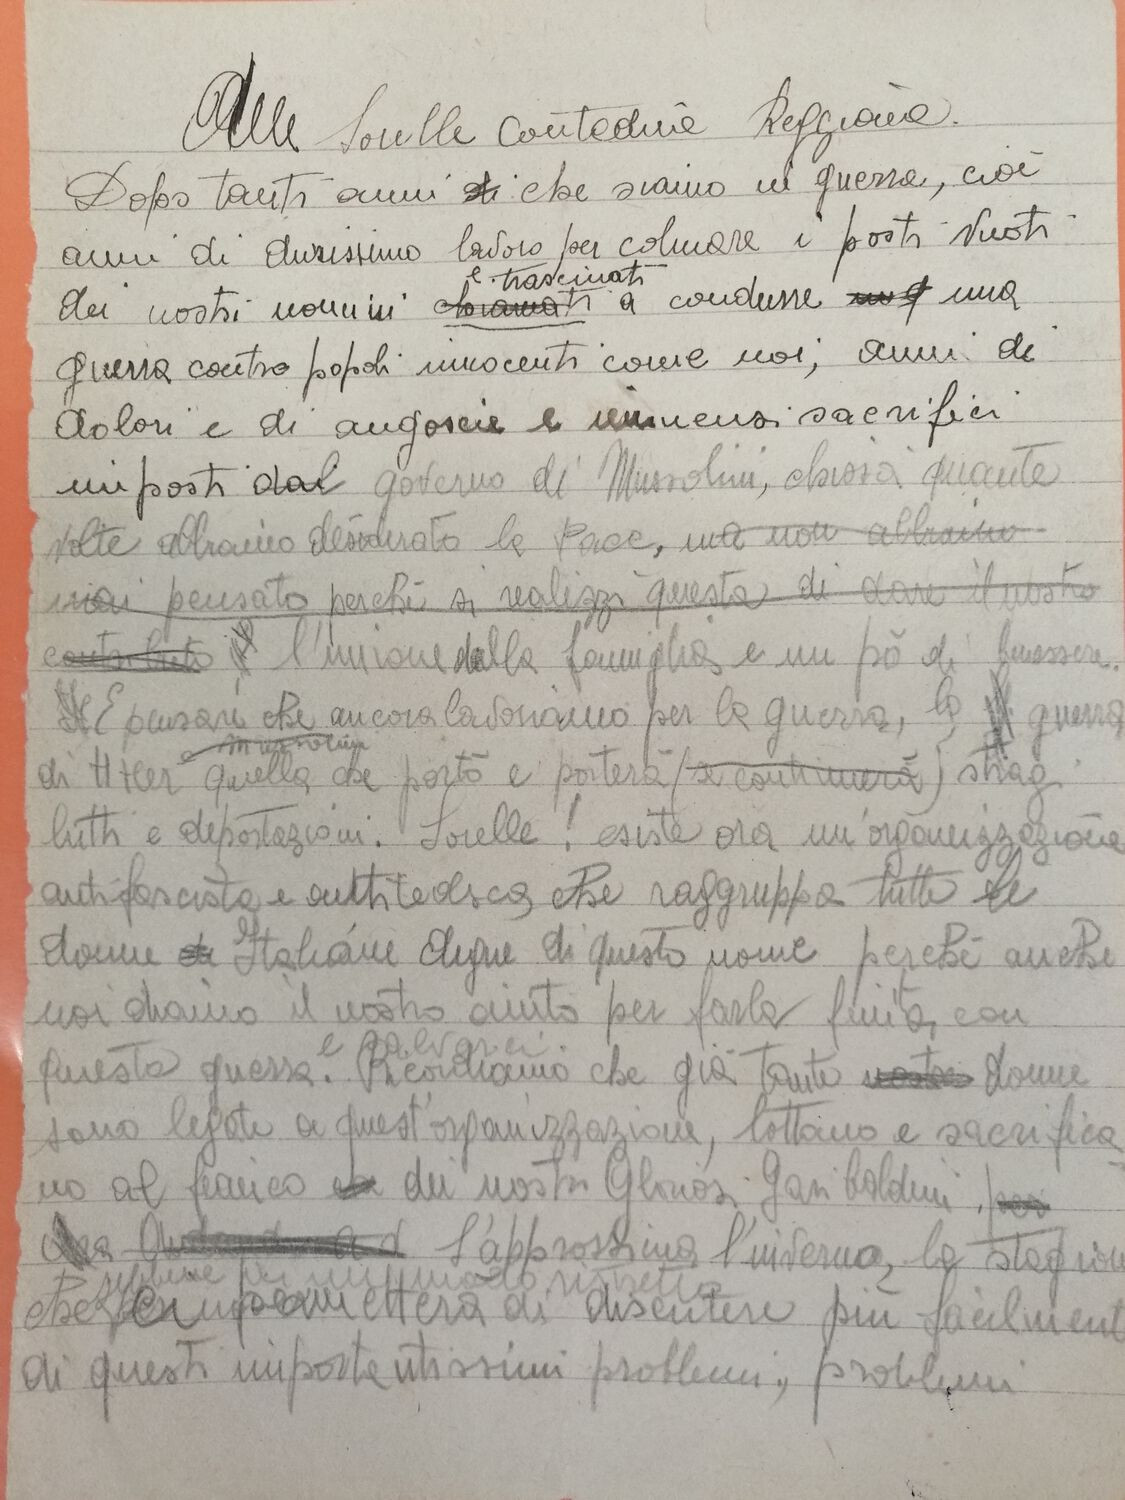 Alle Sorelle contadine Reggiane.
Dopo tanti anni di che siamo in guerra, cioè
anni di durissimo lavoro per colmare i posti vuoti
e trascinati
dei nostri uomini chiamati a condurre una
guerra contro popoli innocenti come noi, anni di
dolori e di angoscie e immensi sacrifici
imposti dal governo di Mussolini, chissà quante
volte abbiamo desiderato la Pace, ma non abbiamo
mai pensato perchè si realizzi questa di dare il nostro
contributo l'unione della famiglia e un pò di benessere.
E pensare che ancora lavoriamo per la guerra, la guerra
e Mussolini
di Hitler quella che portò e porterà (se continuerà) stragi
lutti e deportazioni. Sorelle! esiste ora un'organizzazione
antifascista e antitedesca che raggruppa tutte le
donne di Italiane degne di questo nome perchè anche
noi diamo il nostro aiuto per farla finita con
e salvarci.
questa guerra. Ricordiamo che già tante nostre donne
sono legate a quest'organizzazione, lottano e sacrifica
no al fianco dei nostri Gloriosi Garibaldini, per
S'approssima l'inverno, la stagione
seppure in un modo ristretto
che ci permetterà di discutere più facilment
di questi importantissimi problemi, problemi